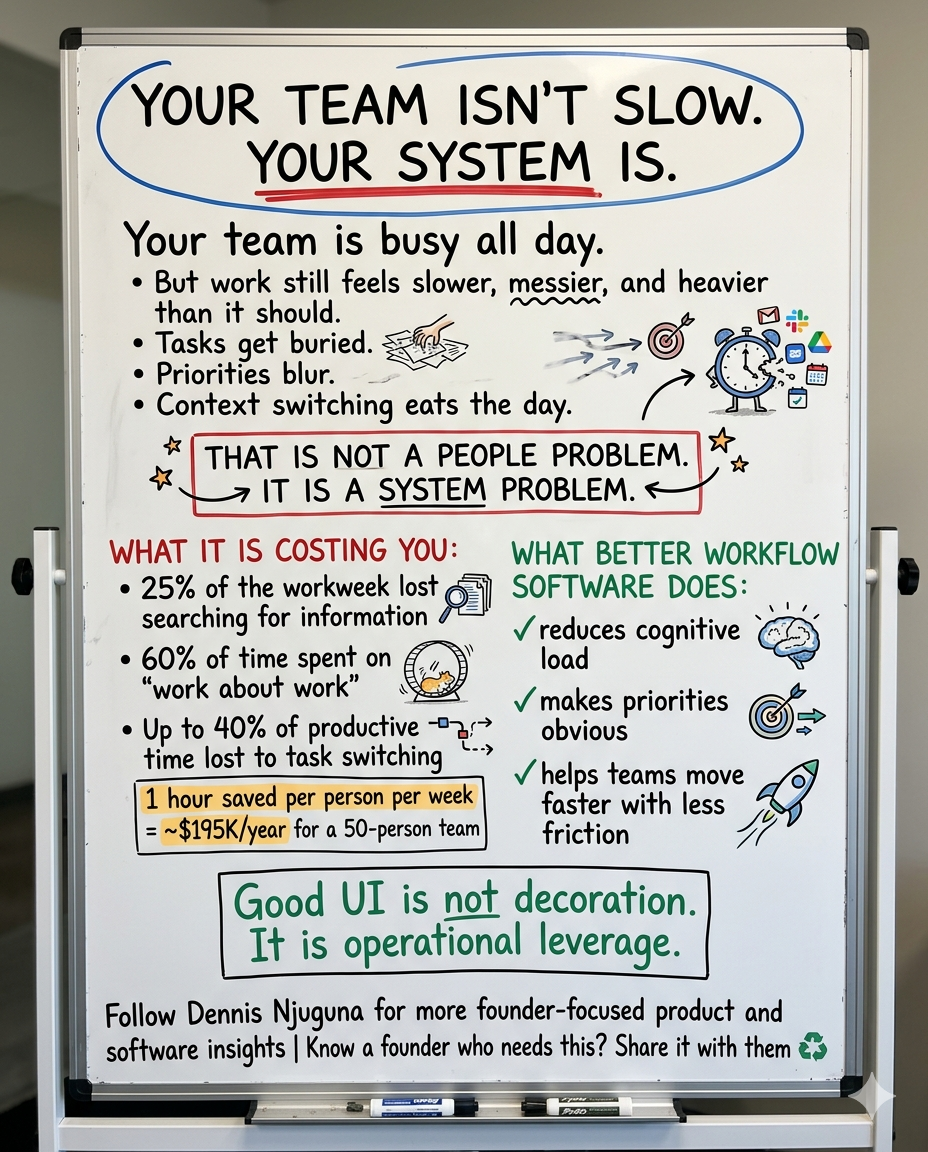 YOUR TEAM ISN'T SLOW.
YOUR SYSTEM IS.
Your team is busy all day.
• But work still feels slower, messier, and heavier
than it should.
• Tasks get buried.
• Priorities blur.
• Context switching eats the day.
THAT IS NOT A PEOPLE PROBLEM.
IT IS A SYSTEM PROBLEM.
WHAT IT IS COSTING YOU:
• 25% of the workweek lost
searching for information
• 60% of time spent on
“work about work”
• Up to 40% of productive
time lost to task switching
1 hour saved per person per week
= ~$195K/year for a 50-person team
WHAT BETTER WORKFLOW
SOFTWARE DOES:
✓ reduces cognitive
load
✓ makes priorities
obvious
✓ helps teams move
faster with less
friction
Good UI is not decoration.
It is operational leverage.
Follow Dennis Njuguna for more founder-focused product and
software insights | Know a founder who needs this? Share it with them ♻